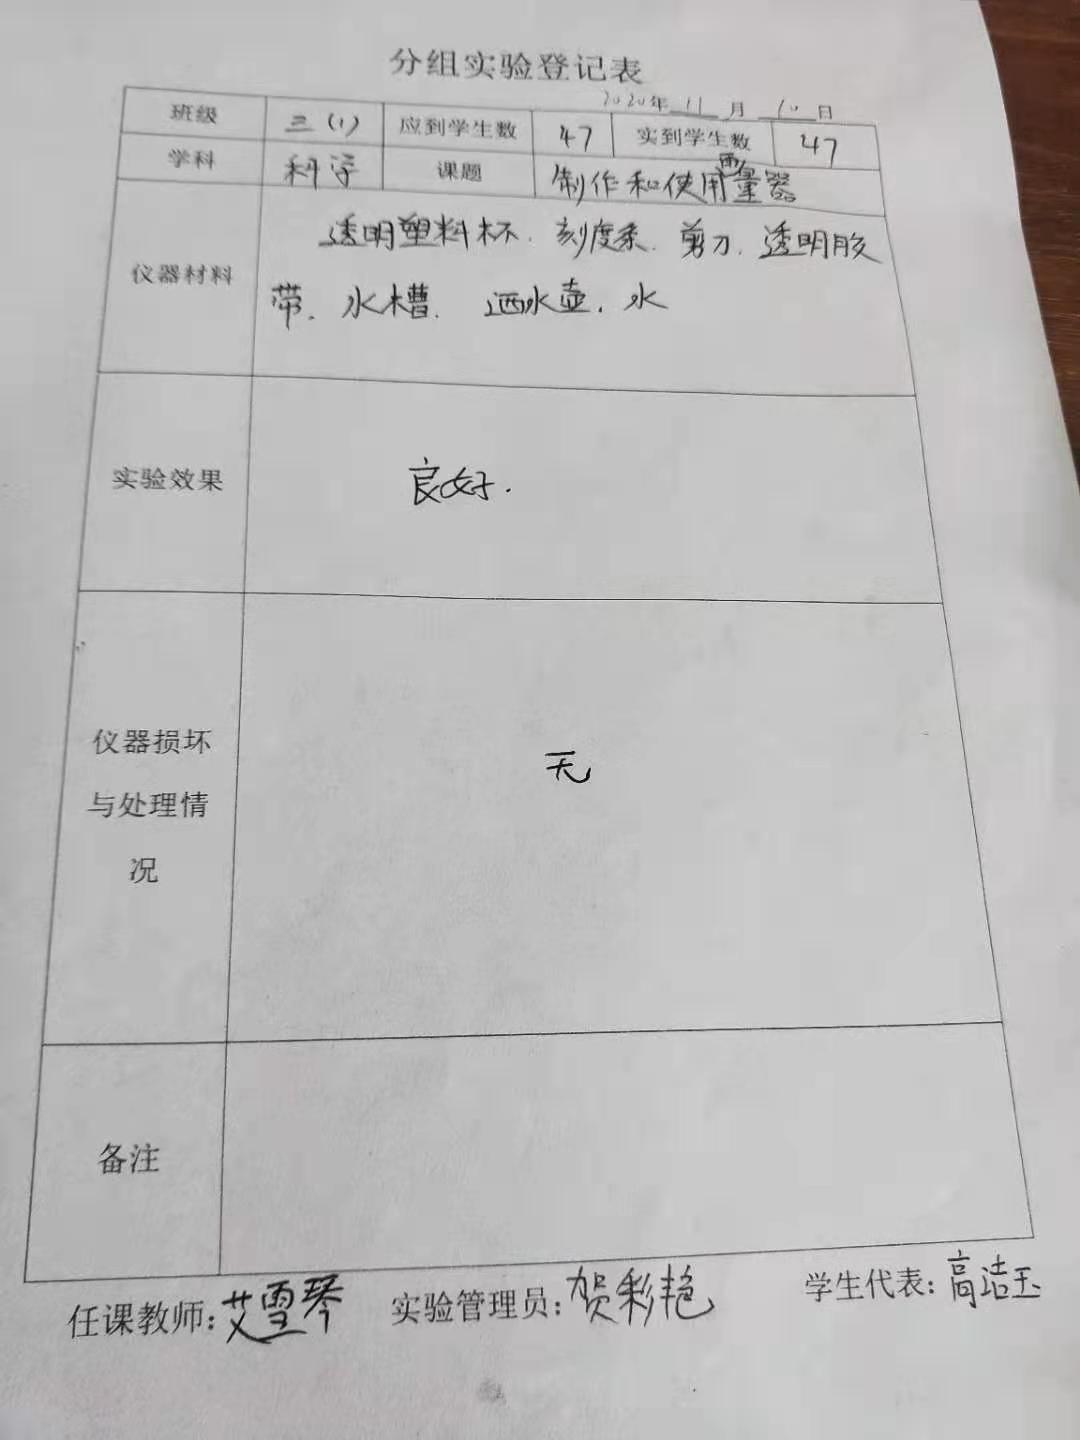 分组实验登记表
2020年 11 月 10 日
班级 三(1) 应到学生数 47 实到学生数 47
学科 科学 课题 制作和使用雨量器
仪器材料 透明塑料杯、刻度条、剪刀、透明胶
带、水槽、洒水壶、水
实验效果 良好.
仪器损坏
与处理情
况
无
备注
任课教师:艾雪琴 实验管理员:贺彩艳 学生代表:高洁玉